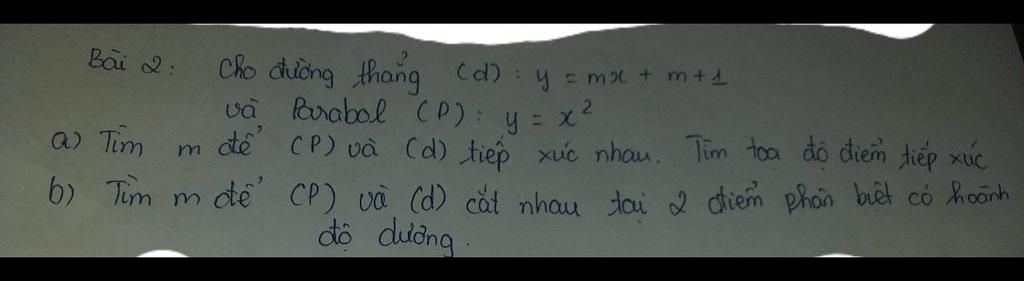 Bài 2: Cho đường thẳng (d): y = mx + m + 1
và Parabol (P): y = x²
a) Tìm m để (P) và (d) tiếp xúc nhau. Tìm toạ độ điểm tiếp xúc
b) Tìm m để (P) và (d) cắt nhau tại 2 điểm phân biệt có hoành
độ dương.